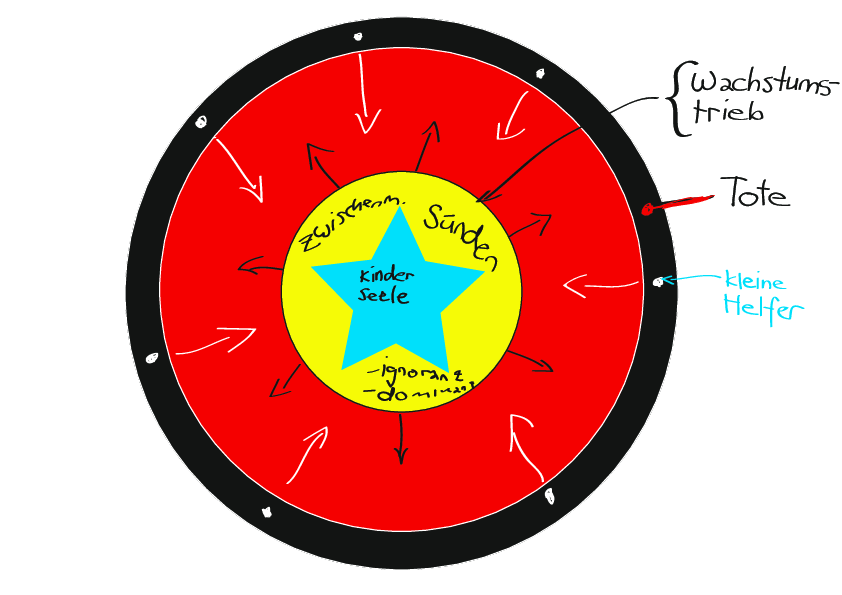 Wachstums-
trieb
Tote
kleine
Helfer
zwischenm.
Sünden
kinder
seele
-ignoranz
-dominanz